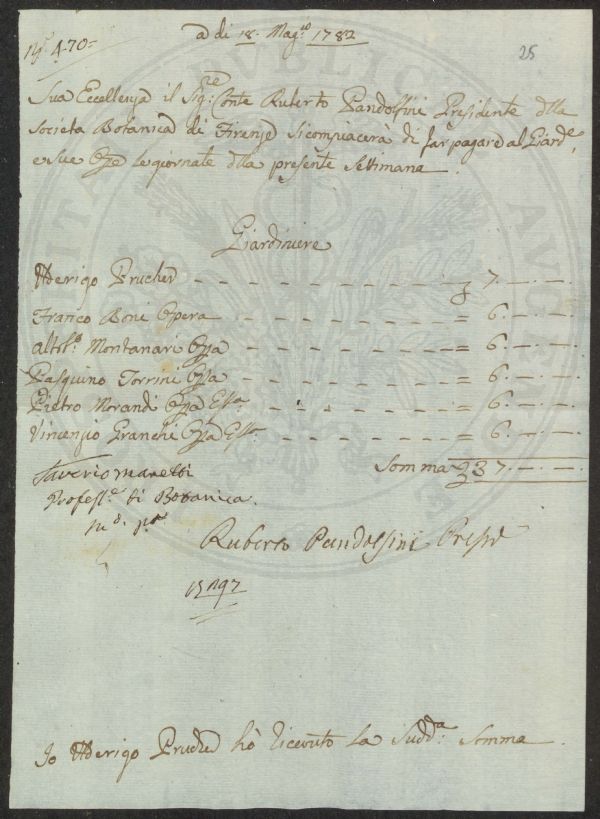 a di 18. Mag:º 1782
Nº 470=
25
Sua Eccellenza il Sig:re Conte Ruberto Pandolfini Presidente dlla
Società Botanica di Firenze si compiacerà di far pagare al Giard:e
e sue Opre le giornate dlla presente Settimana.
Giardiniere
Federigo Prucher - - - - - - - - - - - - £ 7. — . — .
Franco Boni Opera - - - - - - - - - - = 6. — . — .
Montanari Opa - - - - - - - - - = 6. — . — .
Pasquino Torrini Opa - - - - - - - - - = 6. — . — .
Pietro Morandi Opa Esta - - - - - - - - = 6. — . — .
Vincenzio Franchi Opa Esta - - - - - - - = 6. — . — .
Somma £ 37. — . — .
Saverio Manetti
Profess:e di Botanica.
Ruberto Pandolfini Presid
Io Federigo Prucher hò ricevuto la Sudd:a Somma.